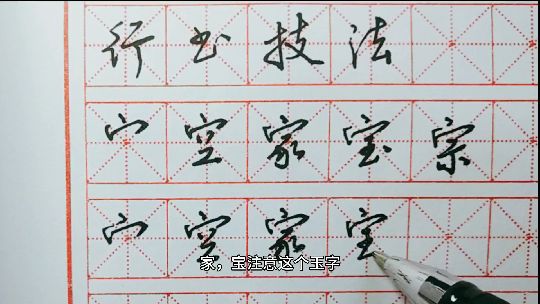 行书技法
宀空家宝宗
宀空家宝
家，宝注意这个玉字